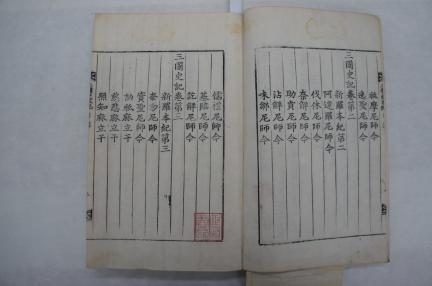 祇摩尼師今
逸聖尼師今
三國史記卷第二
新羅本紀第二
阿達羅尼師今
伐休尼師今
奈解尼師今
助賁尼師今
沾解尼師今
味鄒尼師今
儒禮尼師今
基臨尼師今
訖解尼師今
三國史記卷第三
新羅本紀第三
奈勿尼師今
實聖尼師今
訥祇麻立干
慈悲麻立干
照知麻立干